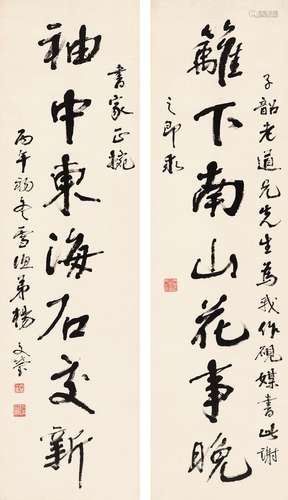 子韶老道兄先生為我作硯媒書此謝
籬下南山花事晚
之即求
書家正腕
袖中東海石交新
丙午初冬雪漁弟楊文瑩